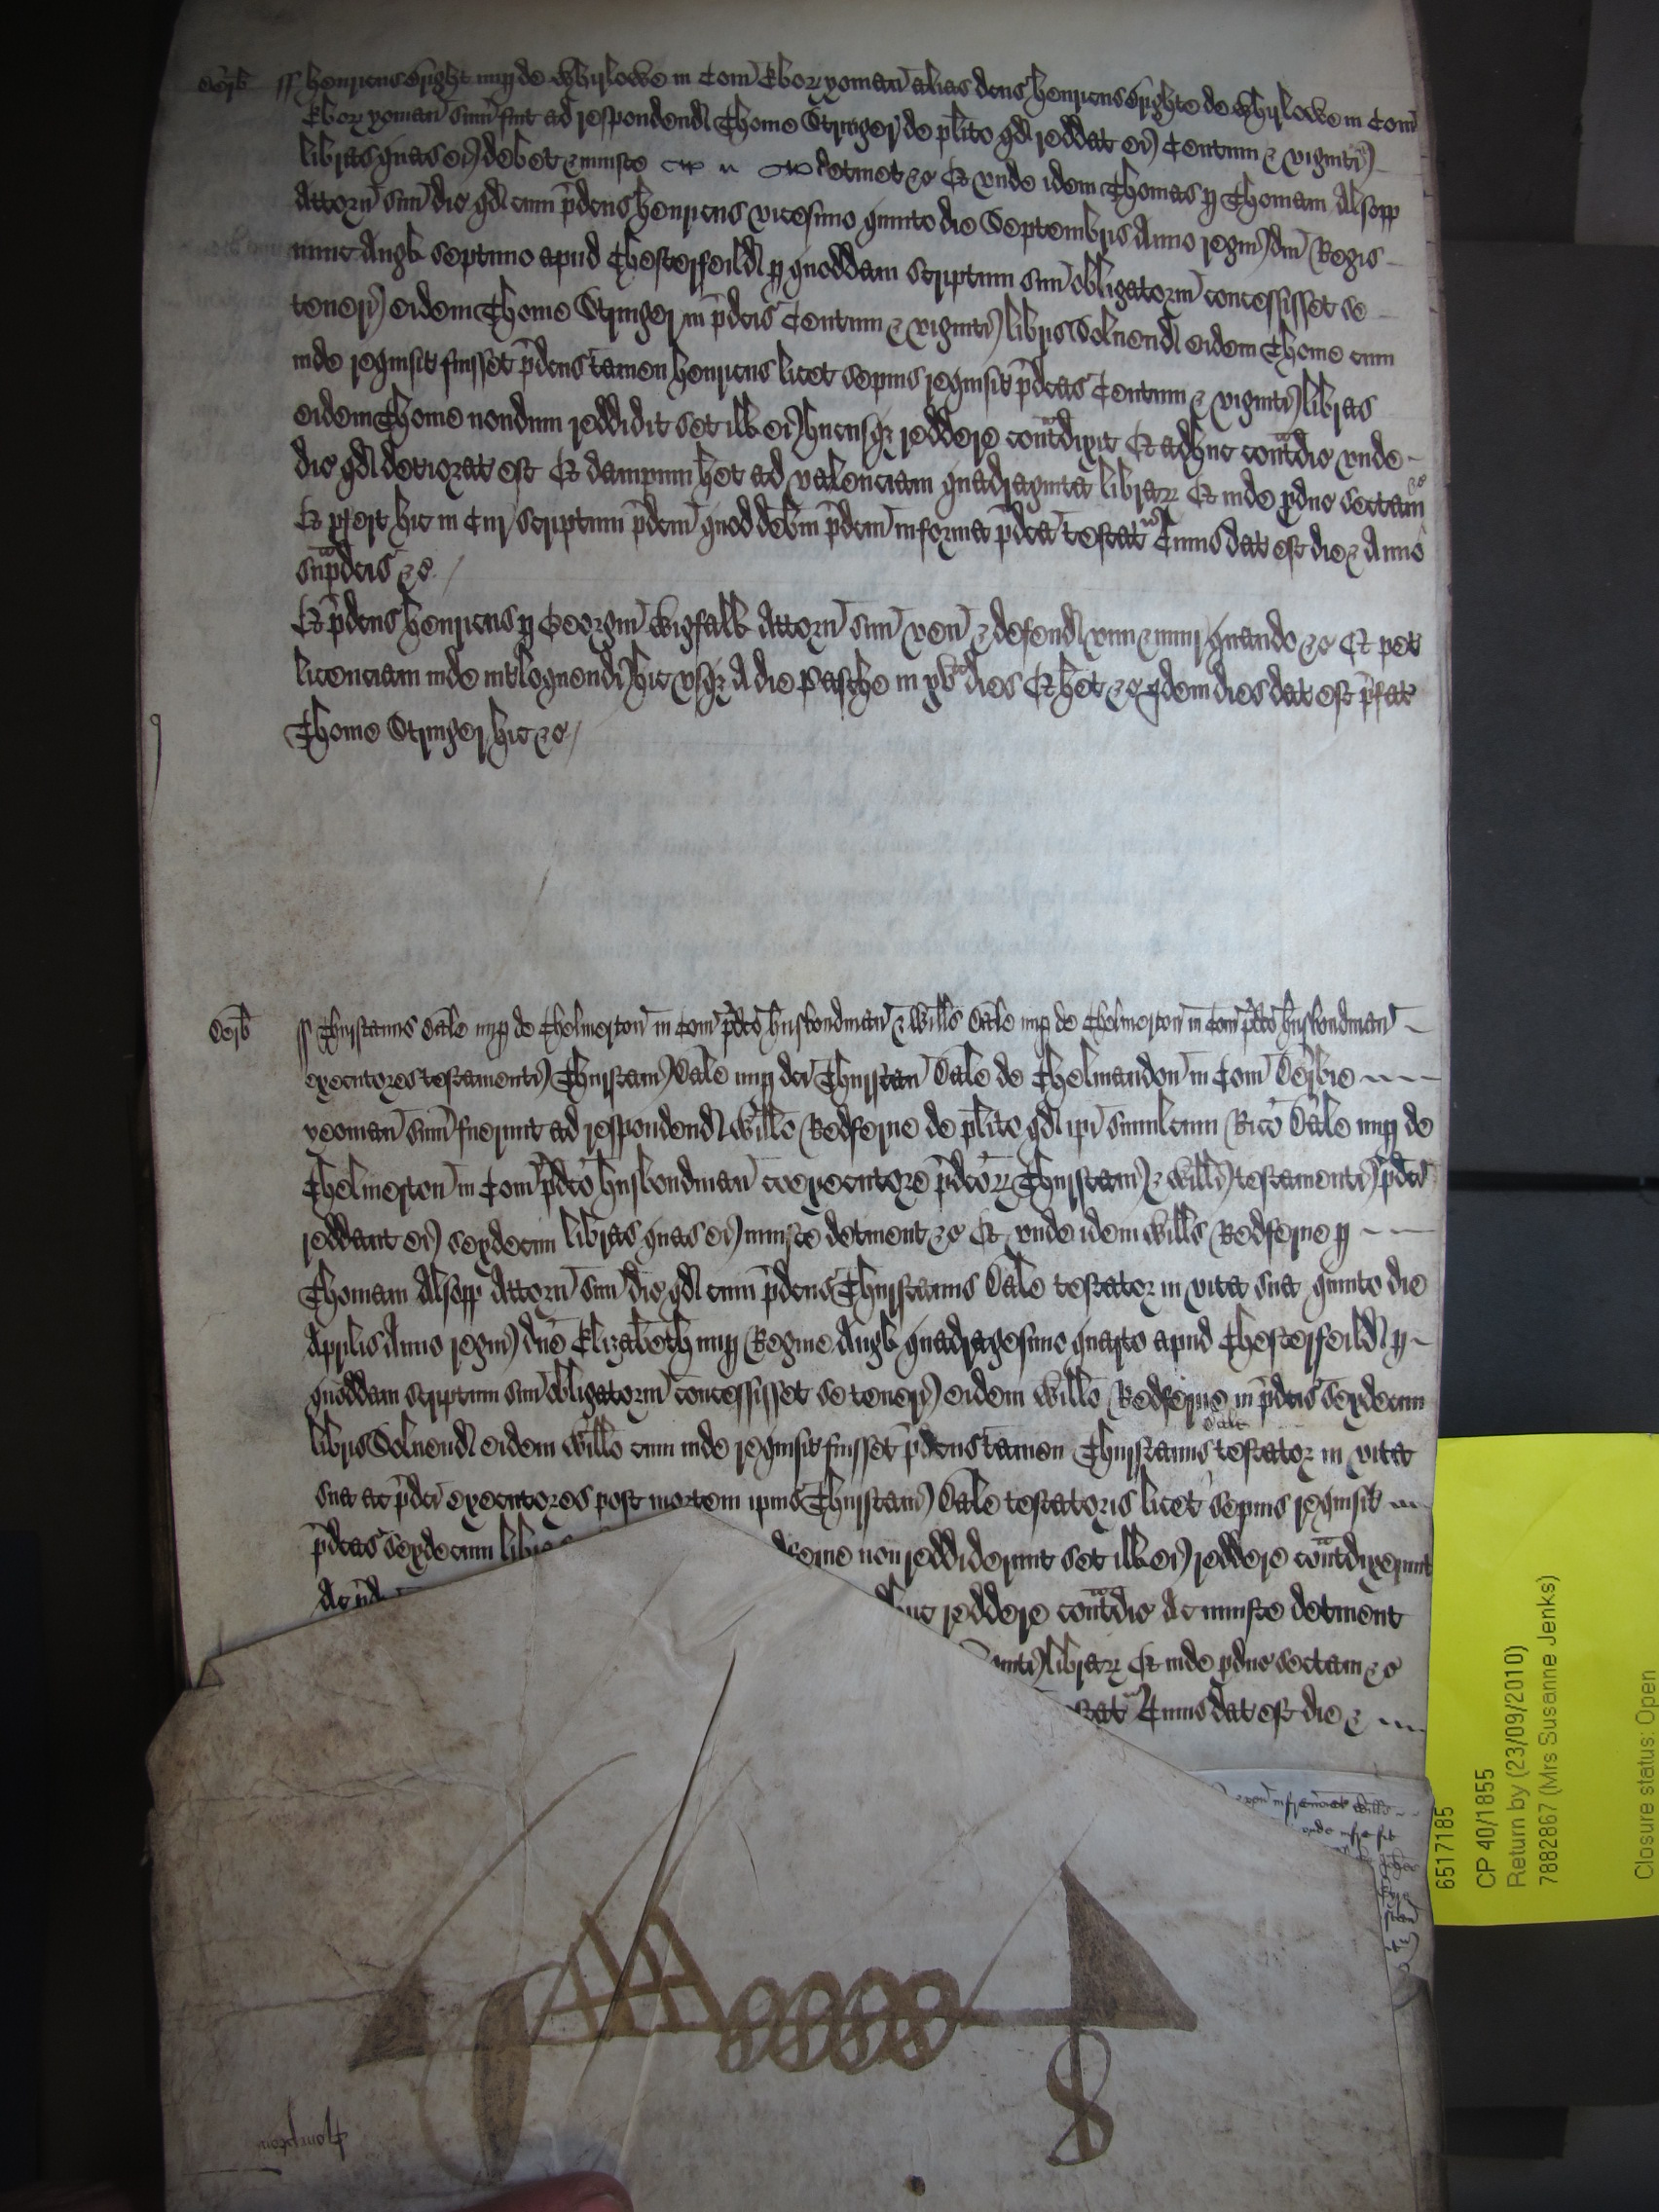 Derb ss Henricus Bright nup de Whirlowe in Com Ebor yoman alias dcus Henricus Brighte de Whirlowe in Com
Ebor yoman sum fuit ad respondend Thome Stringer de plito qd reddat ei Centum & viginti
libras quas ei debet & iniuste detinet &c Et unde idem Thomas p Thomam Alsopp
Attorn suu dic qd cum pdcus Henricus vicesimo quinto die Septembris Anno regni dni Regis
nunc Angli septimo apud Chesterfeild p quoddam scriptum suu obligatoriu concessisset se
teneri eidem Thome Stringer in pdcis Centum & viginti libris Solvend eidem Thome cum
inde requisit fuisset pdcus tamen Henricus licet sepius requisit pdcas Centum & viginti libras
eidem Thome nondum reddidit set ill ei hucusq reddere contradixit Et adhuc contradic unde
dic qd deteriorat est Et dampnum het ad valenciam quadraginta librar Et inde pduc sectam &c
Et pfert hic in Cur scriptum pdcm quod debm pdcm in forma pdca testat Cuius dat est die & Anno
supradcis &c
Et pdcus Henricus p Georgiu Wigfall Attorn suu ven & defend vim & iniur quando &c Et pet
licenciam inde interloquendi hic usq A die Pasche in xv dies Et het &c Idem dies dat est pfat
Thome Stringer hic &c
Derb ss Thurstanus Dale nup de Chelmerton in Com pdco husbondman & Wills Dale nup de Chelmerton in Com pdco husbondman
executores testamenti Thurstani Dale nup dci Thurstan Dale de Chelmandon in Com Derbie
yeoman sum fuerunt ad respondend Willo Redferne de plito qd ipi simulcum Rico Dale nup de
Chelmerton in Com pdco husbondman coexecutore pdcor Thurstani & Willi testamenti pdci
reddant ei sexdecim libras quas ei iniuste detinent &c Et unde idem Wills Redferne p
Thomam Alsopp Attorn suu dic qd cum pdcus Thurstanus Dale testator in vita sua quinto die
Aprilis Anno regni dne Elizabeth nup Regine Angli quadragesimo quarto apud Chesterfeild p
quoddam scriptum suu obligatoriu concessisset se teneri eidem Willo Redferne in pdcis sexdecim
libris Solvend eidem Willo cum inde requisit fuisset pdcus tamen Thurstanus Dale testator in vita
sua ac pdci executores post mortem ipius Thurstani Dale testatoris licet sepius requisit
pdcas sexdecim libras ferne non reddiderunt set ill ei reddere contradixerunt
Ac pd reddere contradic Ac iniuste detinent
librar Et inde pduc sectam &c
Cuius dat est die &
6517185
CP 40/1855
Return by (23/09/2010)
7882867 (Mrs Susanne Jenks)
Closure status: Open